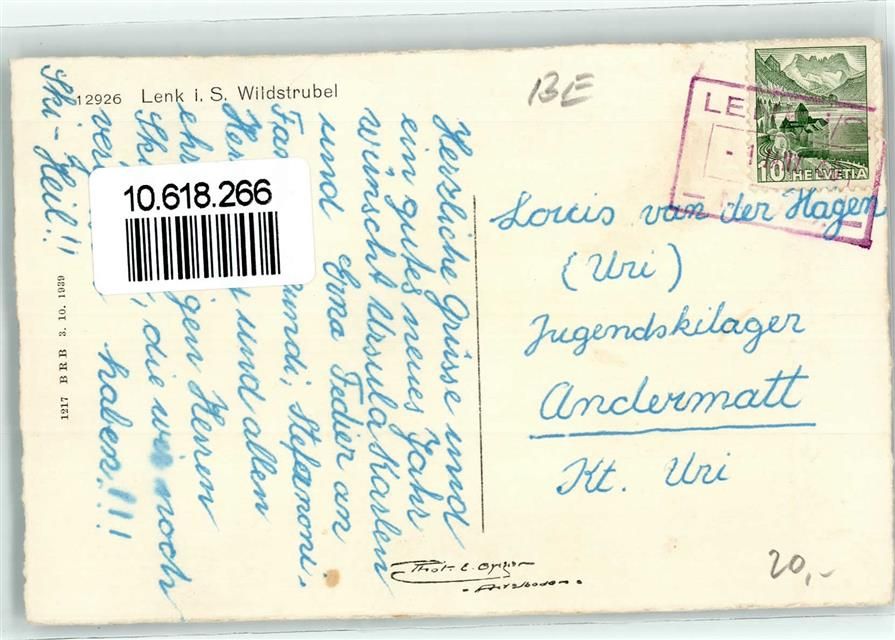 12926 Lenk i. S. Wildstrubel
BE
10 HELVETIA
10.618.266
Herzliche Grüsse und
ein gutes neues Jahr
wünscht Ursula Karlen
und Erna Fedier an
Fam. undi, Stefanoni.
Her und allen
ehr gen Herren
Ski , die wir noch
ver haben!!!
Ski-Heil!!
1217 BRB 3. 10. 1939
Louis van der Hagen
(Uri)
Jugendskilager
Andermatt
Kt. Uri
Phot. E. Gyger
Adelboden
20,-